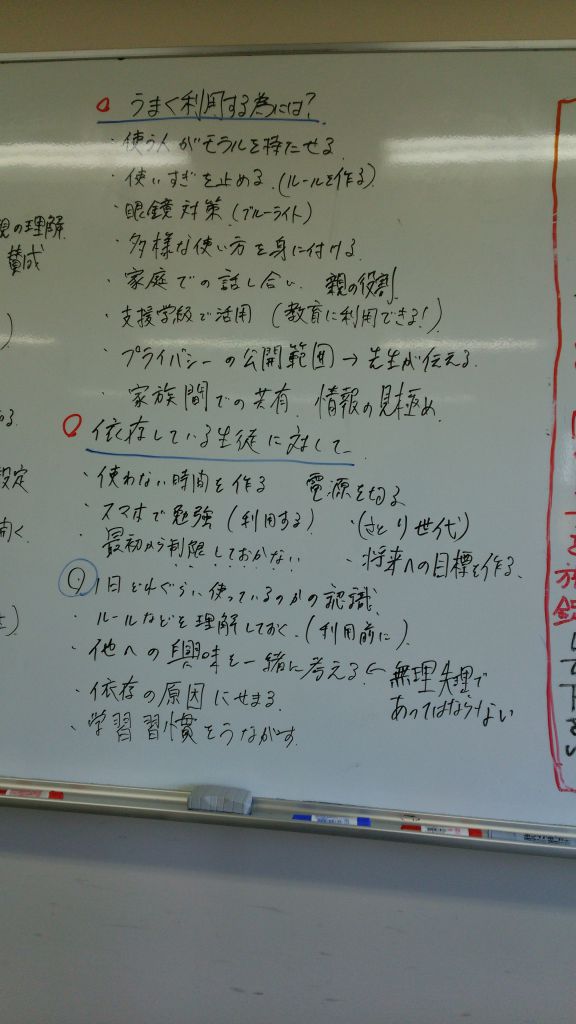 うまく利用する為には?
・使う人がモラルを持たせる
・使いすぎを止める.(ルールを作る)
・眼鏡対策(ブルーライト)
・多様な使い方を身に付ける.
・家庭での話し合い. 親の役割.
・支援学級で活用(教育に利用できる!)
・プライバシーの公開範囲→先生が伝える.
・家族間での共有. 情報の見極め.
依存している生徒に対して
・使わない時間を作る 電源を切る
・スマホで勉強(利用する) ・(さとり世代)
・最初から制限しておかない ・将来への目標を作る.
・1日どれぐらい使っているのかの認識.
・ルールなどを理解しておく.(利用前に)
・他への興味を一緒に考える.← 無理矢理で
あってはならない
・依存の原因にせまる.
・学習習慣をうながす.
の理解.
賛成
設定
開く.
して下さい